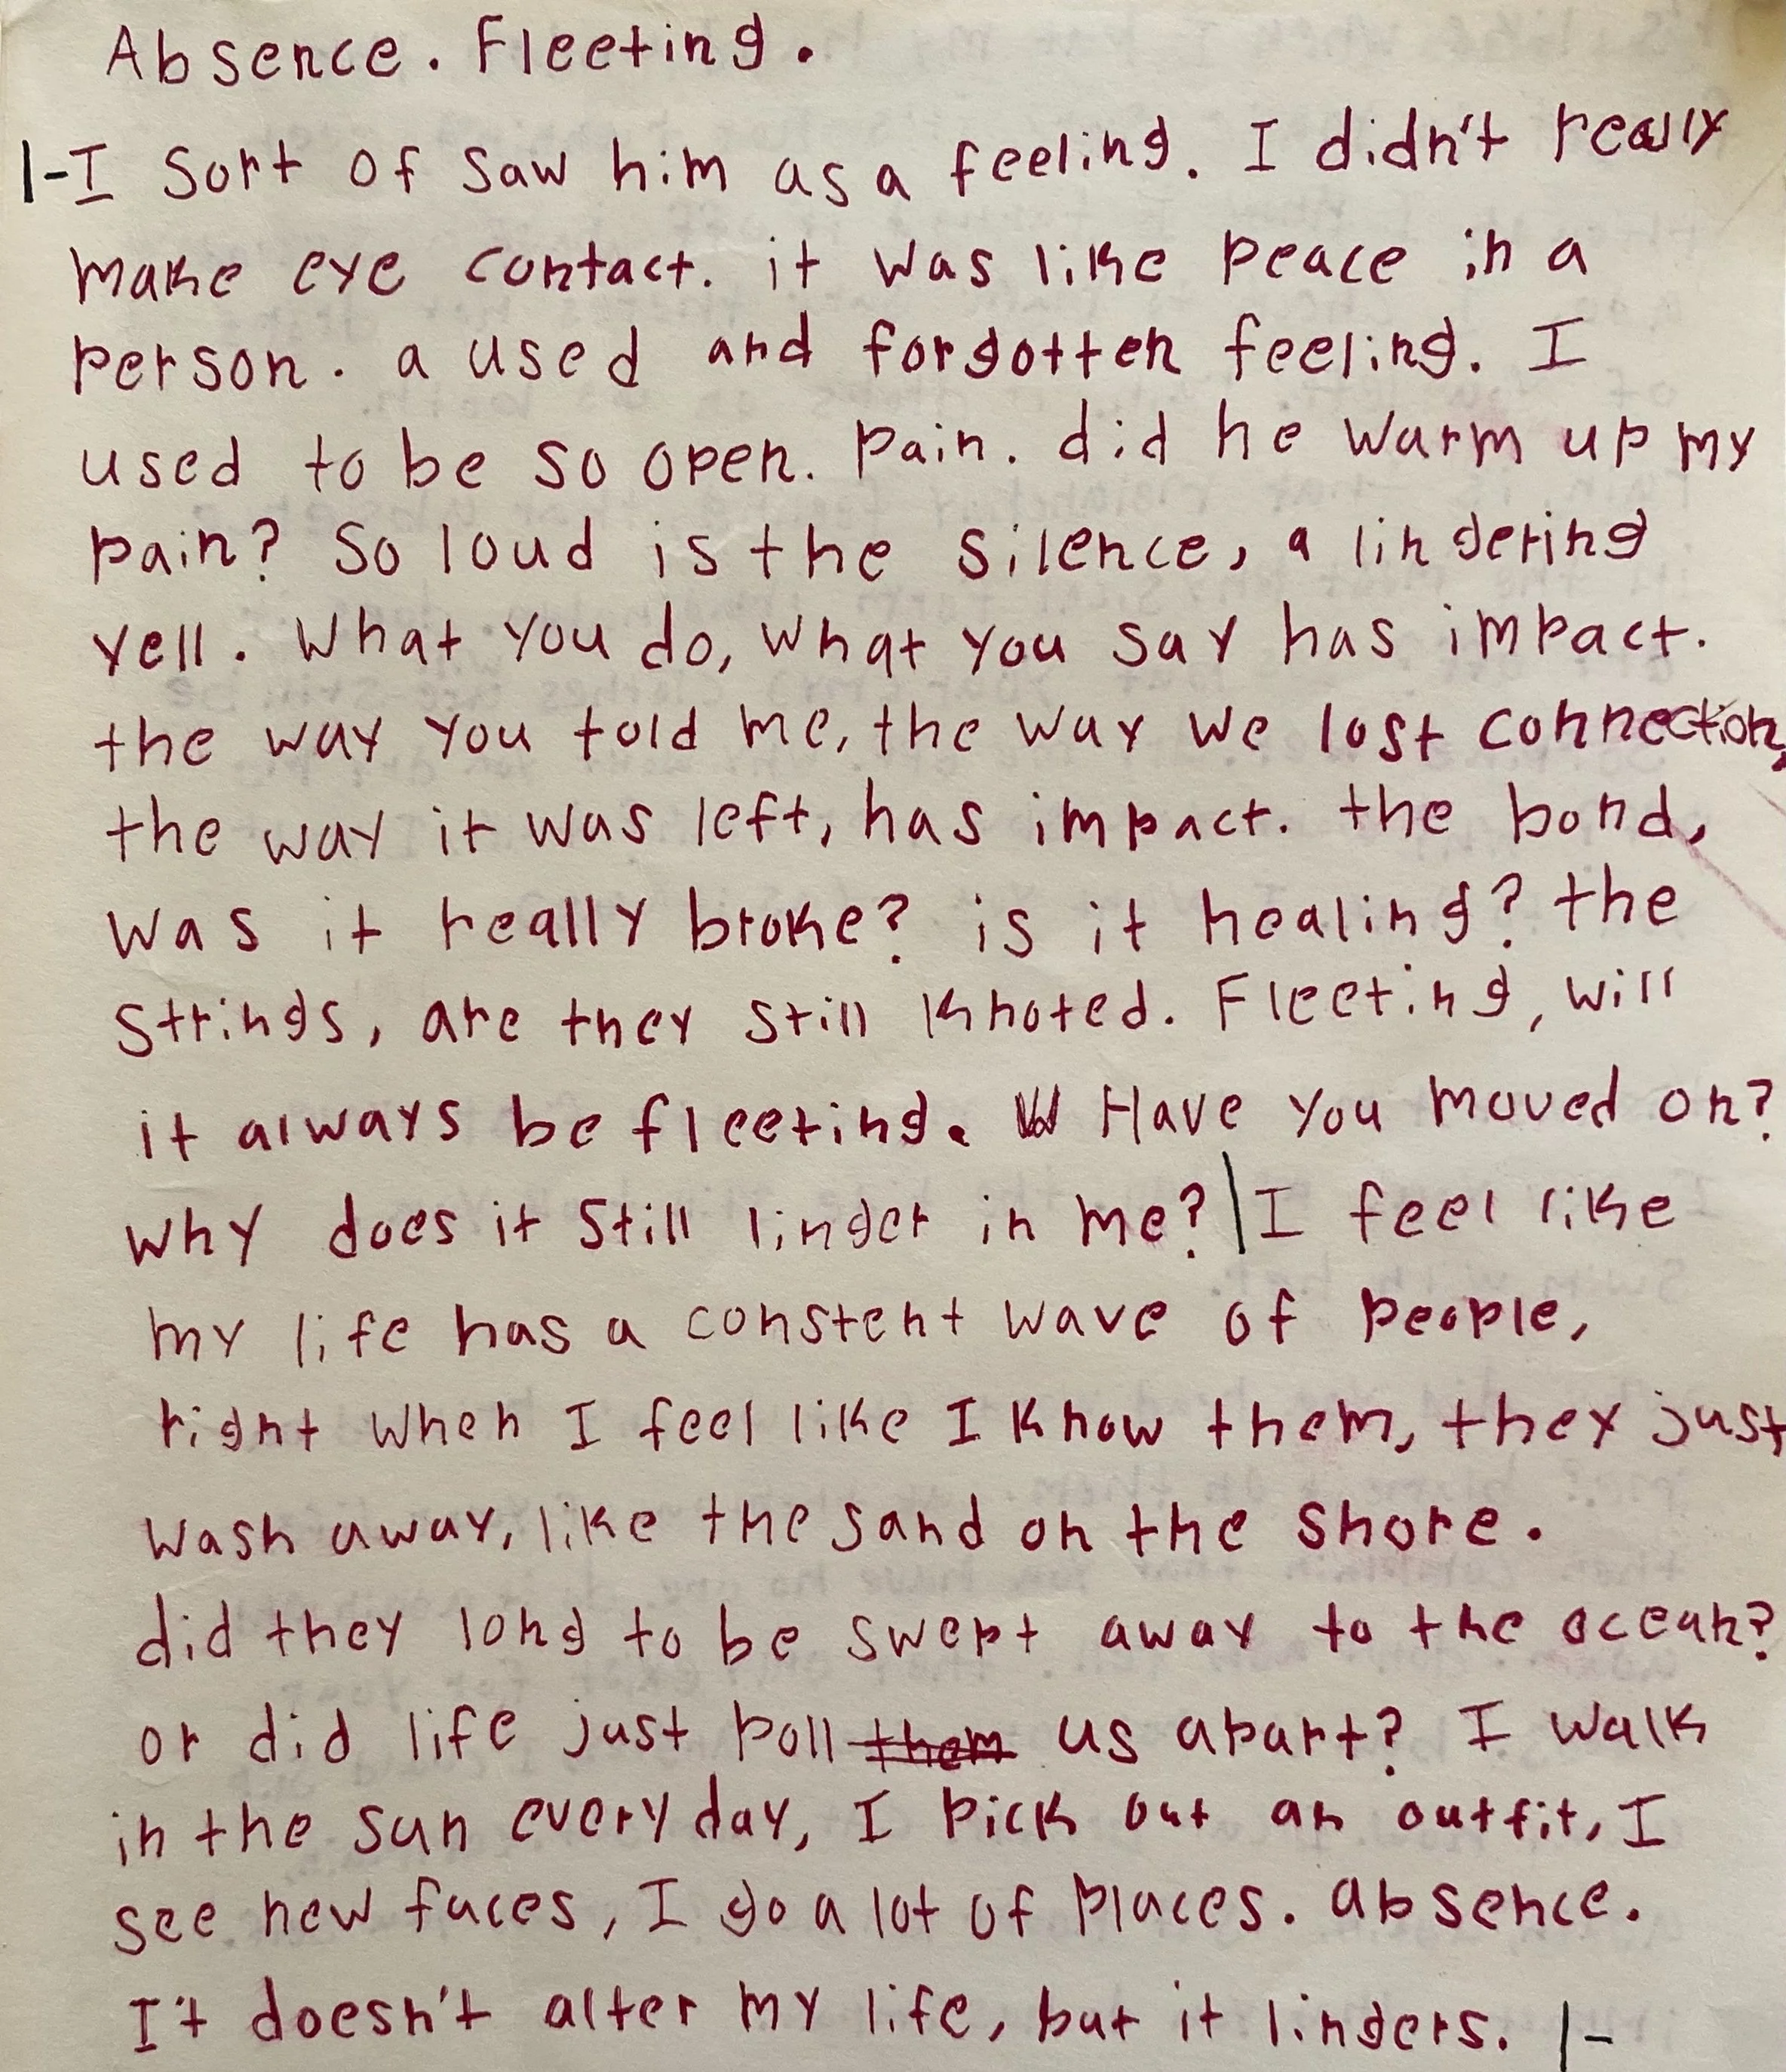 Absence. Fleeting.
|-I sort of saw him as a feeling. I didn't really
make eye contact. it was like peace in a
person. a used and forgotten feeling. I
used to be so open. pain. did he warm up my
pain? So loud is the silence, a lingering
yell. What you do, what you say has impact.
the way you told me, the way we lost connection,
the way it was left, has impact. the bond,
was it really broke? is it healing? the
strings, are they still knoted. Fleeting, will
it always be fleeting. Have you moved on?
why does it still linger in me?|I feel like
my life has a constent wave of people,
right when I feel like I know them, they just
wash away, like the sand on the shore.
did they long to be swept away to the ocean?
or did life just poll them us apart? I walk
in the sun everyday, I pick out an outfit, I
see new faces, I go a lot of places. absence.
It doesn't alter my life, but it lingers. |-